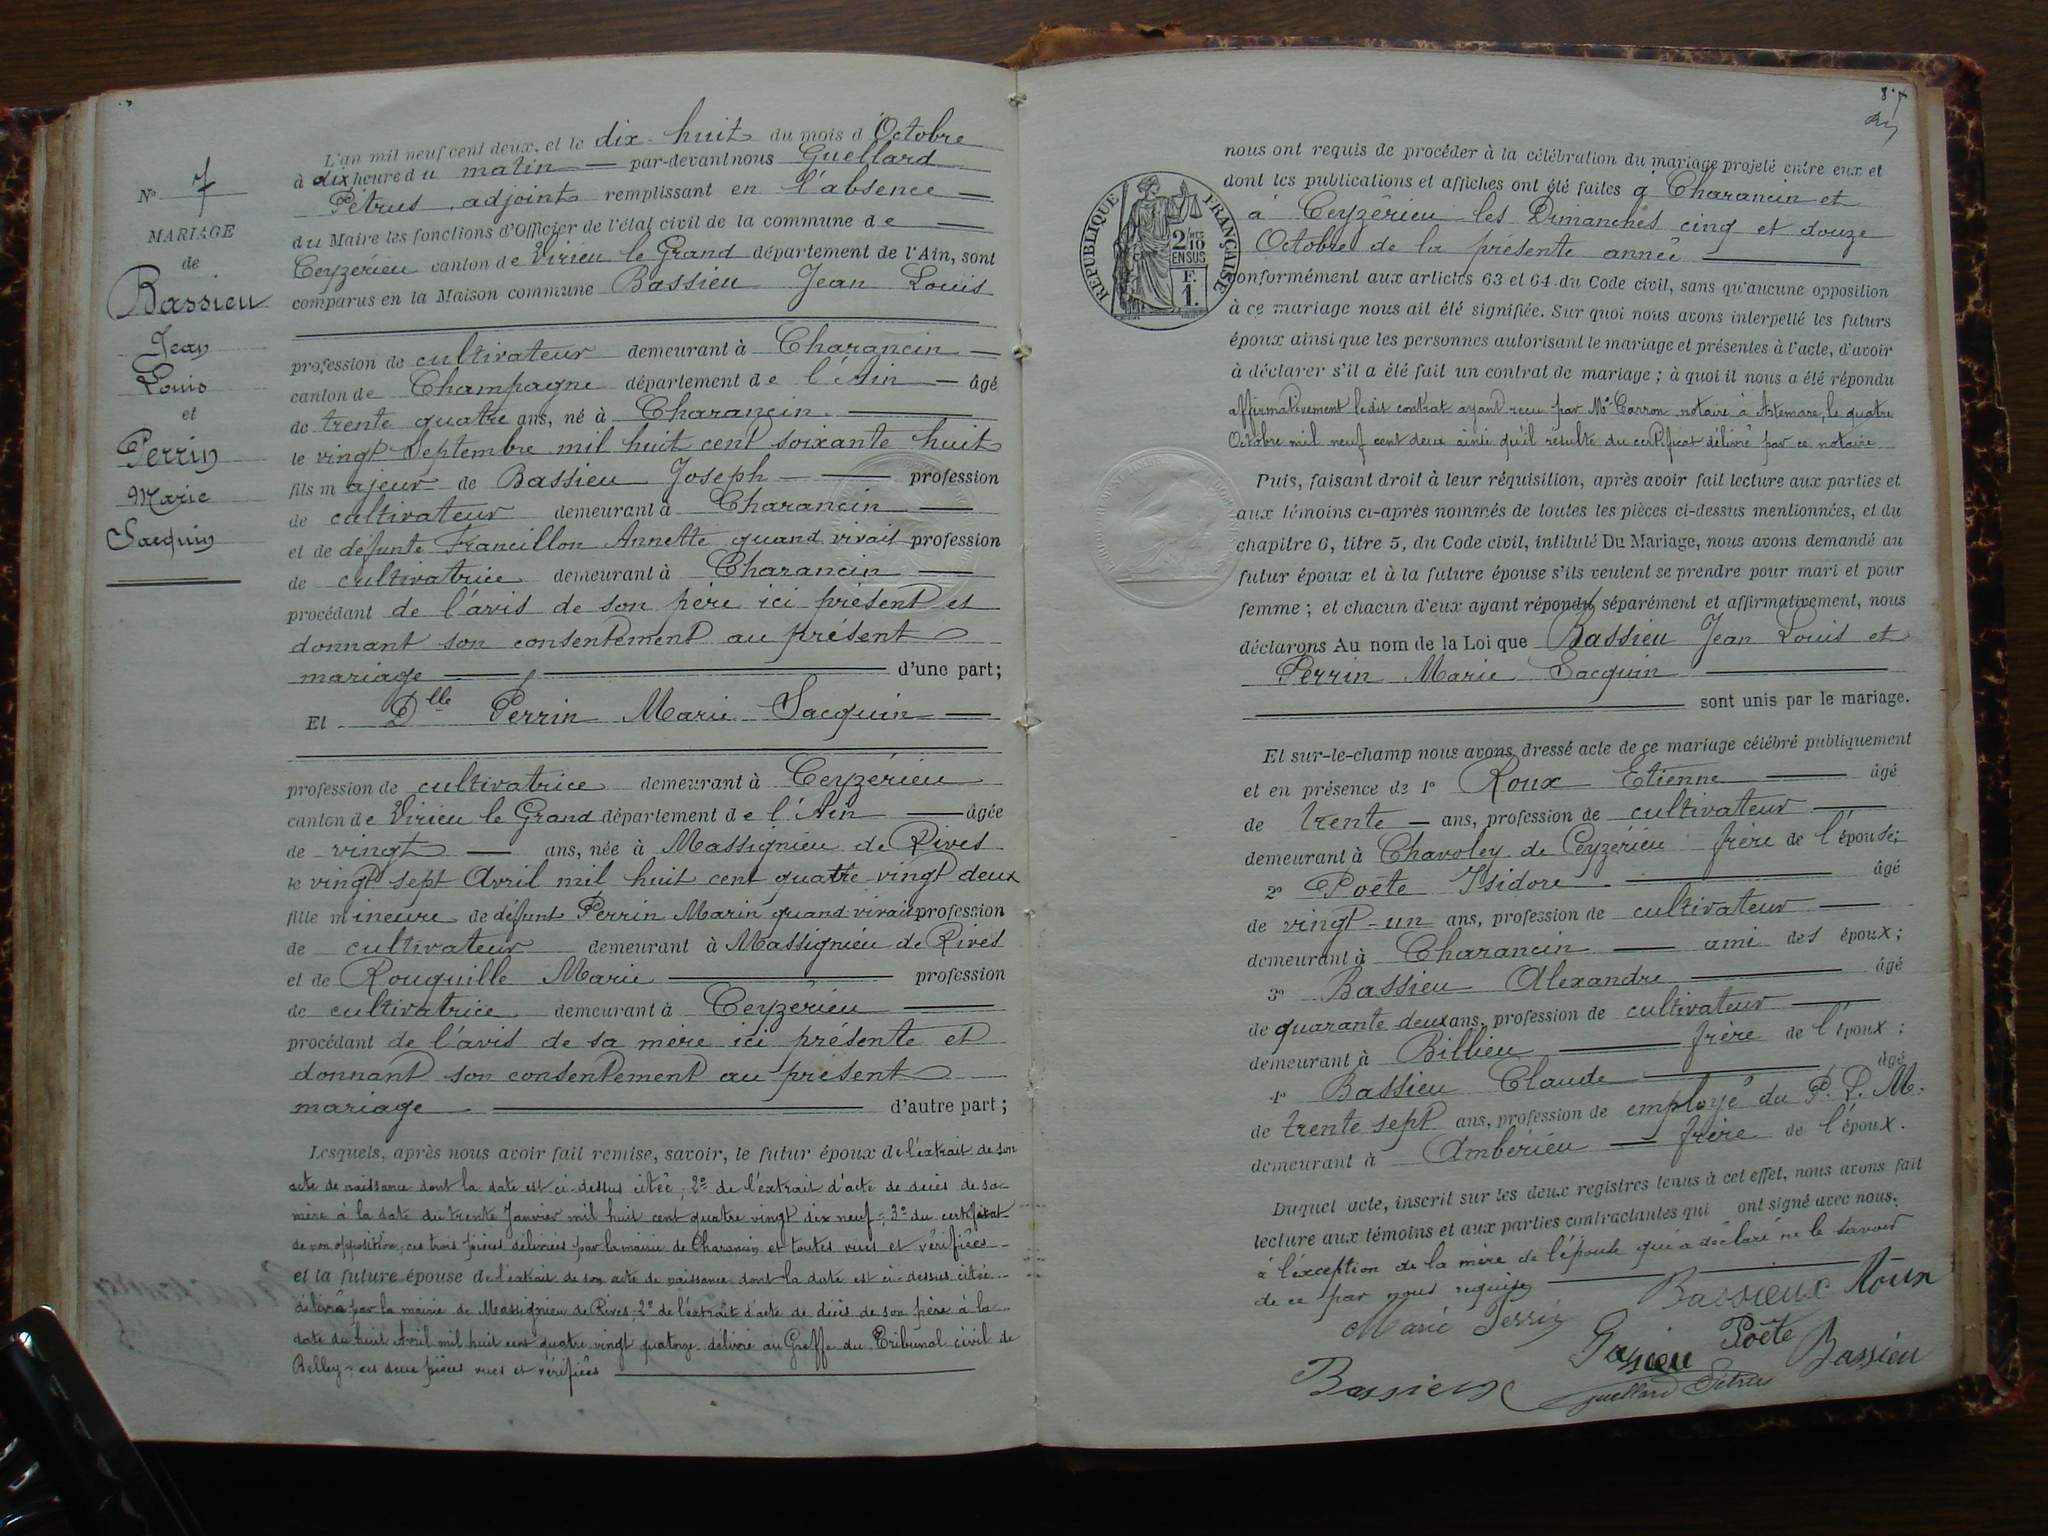 L'an mil neuf cent deux, et le dix-huit du mois d'Octobre
à dix heure du matin — par-devant nous Guellard
Pétrus, adjoint remplissant en l'absence —
du Maire les fonctions d'Officier de l'état civil de la commune de —
Ceyzérieu canton de Virieu le Grand département de l'Ain, sont
comparus en la Maison commune Bassieu Jean Louis
profession de cultivateur demeurant à Charancin —
canton de Champagne département de l'Ain — âgé
de trente quatre ans, né à Charancin —
le vingt Septembre mil huit cent soixante huit
fils majeur de Bassieu Joseph — profession
de cultivateur demeurant à Charancin —
et de défunte Francillon Annette quand vivait profession
de cultivatrice demeurant à Charancin —
procédant de l'avis de son père ici présent et
donnant son consentement au présent
mariage — d'une part;
Et Dlle Perrin Marie Sacquin —
profession de cultivatrice demeurant à Ceyzérieu
canton de Virieu le Grand département de l'Ain — âgée
de vingt — ans, née à Massignieu de Rives
le vingt sept Avril mil huit cent quatre-vingt deux
fille mineure de défunt Perrin Marin quand vivait profession
de cultivateur demeurant à Massignieu de Rives
et de Rouquille Marie — profession
de cultivatrice demeurant à Ceyzérieu —
procédant de l'avis de sa mère ici présente et
donnant son consentement au présent
mariage — d'autre part;
Lesquels, après nous avoir fait remise, savoir, le futur époux de l'extrait de son
acte de naissance dont la date est ci-dessus citée; 2º de l'extrait d'acte de décès de sa
mère à la date du trente Janvier mil huit cent quatre vingt dix neuf; 3º du certificat
de non opposition, ces trois pièces délivrées par la mairie de Charancin et toutes vues et vérifiées
et la future épouse de l'extrait de son acte de naissance dont la date est ci-dessus citée
délivré par la mairie de Massignieu de Rives; 2º de l'extrait d'acte de décès de son père à la
date du huit Avril mil huit cent quatre vingt quatorze délivré au Greffe du Tribunal civil de
Belley - ces deux pièces vues et vérifiées —
Nº 7
MARIAGE
de
Bassieu
Jean
Louis
et
Perrin
Marie
Sacquin
8
nous ont requis de procéder à la célébration du mariage projeté entre eux et
dont les publications et affiches ont été faites à Charancin et
à Ceyzérieu les Dimanches cinq et douze
Octobre de la présente année —
conformément aux articles 63 et 64 du Code civil, sans qu'aucune opposition
à ce mariage nous ait été signifiée. Sur quoi nous avons interpellé les futurs
époux ainsi que les personnes autorisant le mariage et présentes à l'acte, d'avoir
à déclarer s'il a été fait un contrat de mariage; à quoi il nous a été répondu
affirmativement ledit contrat ayant reçu par Me Carron notaire à Artemare, le quatre
Octobre mil neuf cent deux ainsi qu'il résulte du certificat délivré par ce notaire
Puis, faisant droit à leur réquisition, après avoir fait lecture aux parties et
aux témoins ci-après nommés de toutes les pièces ci-dessus mentionnées, et du
chapitre 6, titre 5, du Code civil, intitulé Du Mariage, nous avons demandé au
futur époux et à la future épouse s'ils veulent se prendre pour mari et pour
femme; et chacun d'eux ayant répondu séparément et affirmativement, nous
déclarons Au nom de la Loi que Bassieu Jean Louis et
Perrin Marie Sacquin —
sont unis par le mariage.
Et sur-le-champ nous avons dressé acte de ce mariage célébré publiquement
et en présence de 1º Roux Etienne — âgé
de trente — ans, profession de cultivateur —
demeurant à Chavoley de Ceyzérieu frère de l'épouse;
2º Poëte Isidore — âgé
de vingt-un ans, profession de cultivateur —
demeurant à Charancin — ami des époux;
3º Bassieu Alexandre — âgé
de quarante deux ans, profession de cultivateur —
demeurant à Billieu — frère de l'époux;
4º Bassieu Claude — âgé
de trente sept ans, profession de employé du P. L. M.
demeurant à Amberieu — frère de l'époux.
Duquel acte, inscrit sur les deux registres tenus à cet effet, nous avons fait
lecture aux témoins et aux parties contractantes qui ont signé avec nous.
à l'exception de la mère de l'épouse qui a déclaré ne le savoir
de ce par nous requise —
Bassieux Roux
Marie Perrin
Bassieu Poëte Bassieu
Bassieux
Guellard Pétrus
RÉPUBLIQUE FRANÇAISE
2 10
EN SUS
F.
1.